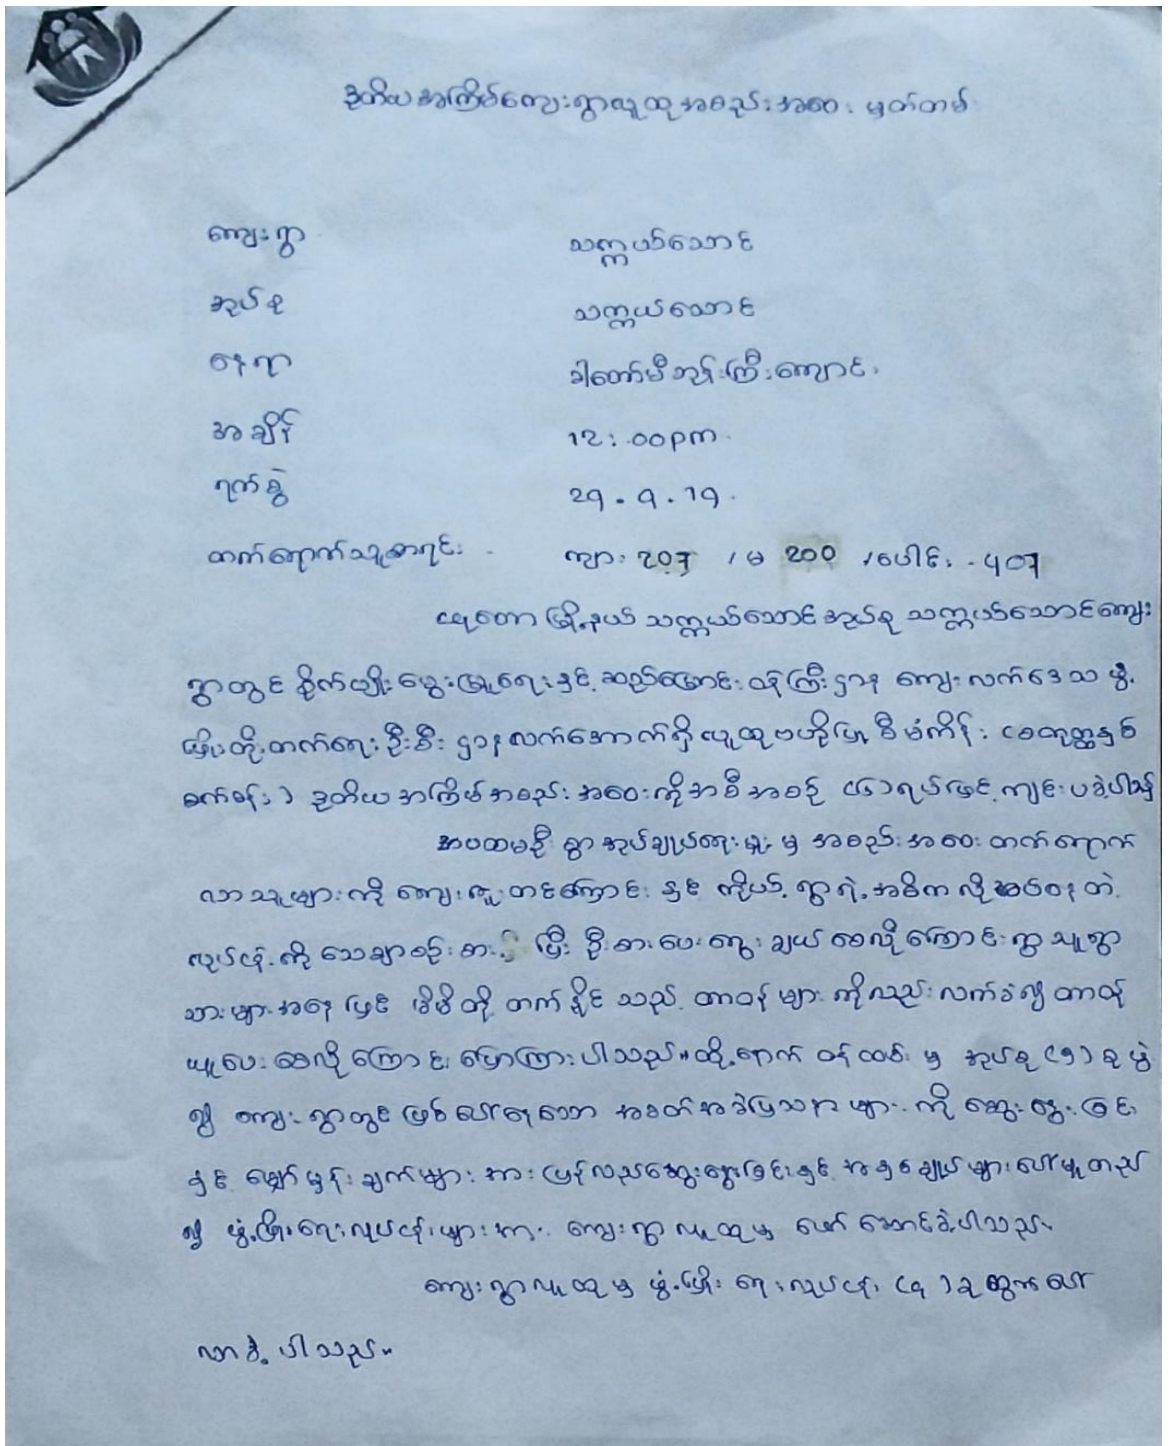 ဒုတိယအကြိမ်ကျေးရွာလူထုအစည်းအဝေး မှတ်တမ်း
ကျေးရွာ သက္ကယ်သောင်
အုပ်စု သက္ကယ်သောင်
နေရာ ခါတော်မီဘုန်းကြီးကျောင်း
အချိန် 12:00pm
ရက်စွဲ 29.9.19
တက်ရောက်သူစာရင်း - ကျား 207 / မ 200 / ပေါင်း - 407
မြို့နယ် သက္ကယ်သောင်အုပ်စု သက္ကယ်သောင်ကျေး
ရွာတွင် စိုက်ပျိုးမွေးမြူရေးနှင့် ဆည်မြောင်းဝန်ကြီးဌာန ကျေးလက်ဒေသ ဖွံ့
ဖြိုးတိုးတက်ရေးဦးစီးဌာနလက်အောက်ရှိ လူထုဗဟိုပြု စီမံကိန်း (စတုတ္ထနှစ်
စက်ဝန်း) ဒုတိယအကြိမ်အစည်းအဝေးကိုအစီအစဉ် (၆)ရပ်ဖြင့် ကျင်းပခဲ့ပါသည်
အပထမဦး ရွာအုပ်ချုပ်ရေးမှူးမှ အစည်းအဝေး တက်ရောက်
လာသူများကို ကျေးဇူးတင်ကြောင်းနှင့် ကိုယ့်ရွာရဲ့အဓိကလိုအပ်နေတဲ့
လုပ်ငန်းကို သေချာစဉ်းစားပြီး ဦးစားပေးရွေးချယ်စေလိုကြောင်း ရွာသူရွာ
သားများအနေဖြင့် မိမိတို့ တက်နိုင်သည့် တာဝန်များကိုလည်းလက်ခံ၍ တာဝန်
ယူပေးစေလိုကြောင်း ပြောကြားပါသည်။ထို့နောက် ဝန်ထမ်းမှ အုပ်စု (၅) စု ဖွဲ့
၍ ကျေးရွာတွင်ဖြစ်ပေါ်နေသော အခက်အခဲပြဿနာများကို ဆွေးနွေးခြင်း
နှင့် မျှော်မှန်းချက်များအား ပြန်လည်ဆွေးနွေးခြင်းနှင့် အနှစ်ချုပ်များပေါ်မူတည်
၍ ဖွံ့ဖြိုးရေးလုပ်ငန်းများအား ကျေးရွာလူထုမှ ဖော်ဆောင်ခဲ့ပါသည်။
ကျေးရွာလူထုမှ ဖွံ့ဖြိုးရေးလုပ်ငန်း (၄) ခုထွက်ပေါ်
လာခဲ့ပါသည်။